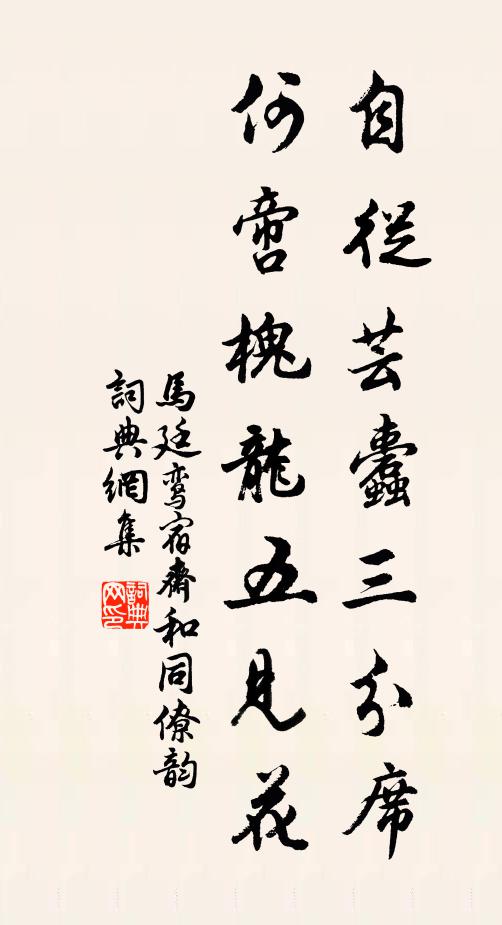 自從芸蠹三分席
何啻槐龍五見花
馬廷鸞宿齋和同僚韵
詞典網集
詞典網印